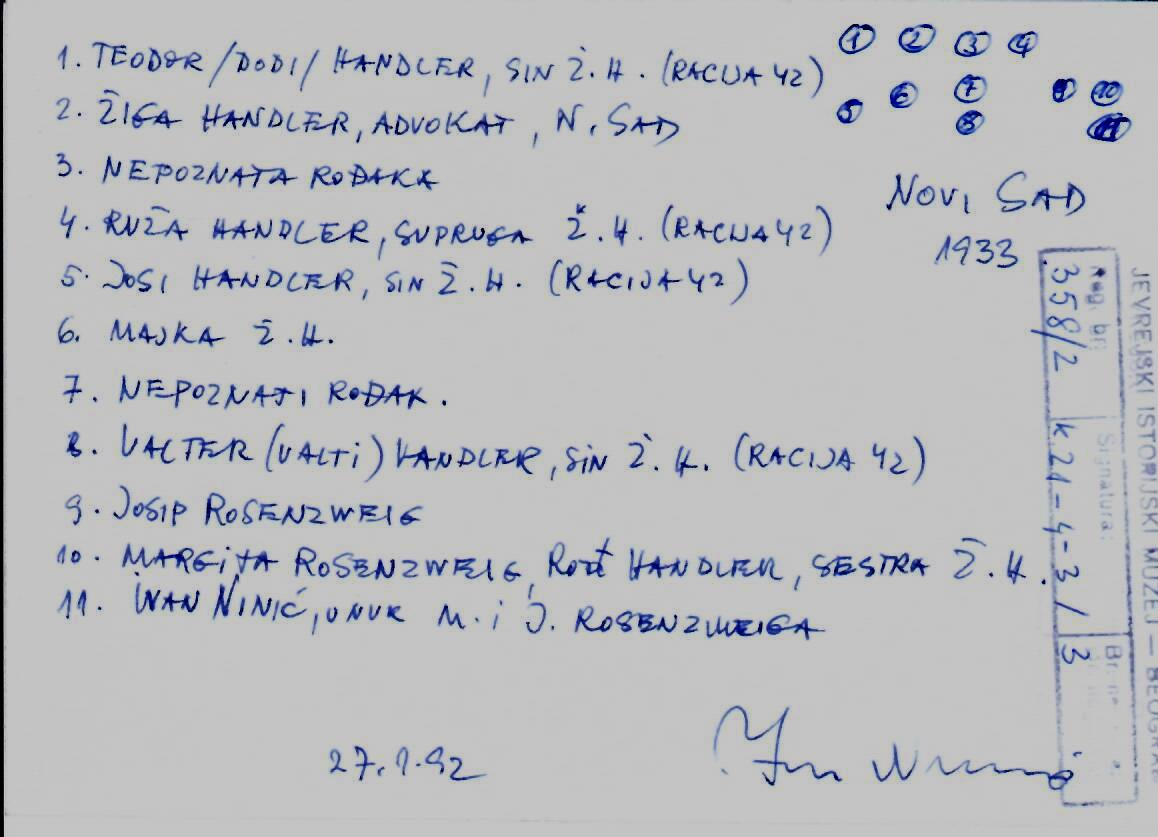 1. TEODOR/DODI/ HANDLER, SIN Ž.H. (RACIJA 42)
2. ŽIGA HANDLER, ADVOKAT, N. SAD
3. NEPOZNATA ROĐAKA
4. RUŽA HANDLER, SUPRUGA Ž.H. (RACIJA 42)
5. JOSI HANDLER, SIN Ž.H. (RACIJA 42)
6. MAJKA Ž.H.
7. NEPOZNATI ROĐAK.
8. VALTER (VALTI) HANDLER, SIN Ž.H. (RACIJA 42)
9. JOSIP ROSENZWEIG
10. MARGITA ROSENZWEIG, ROĐ HANDLER, SESTRA Ž.H.
11. IVAN NINIĆ, UNUK M. i J. ROSENZWEIGA
1 2 3 4
5 6 7 9 10
8 11
NOVI SAD
1933
27.1.92
JEVREJSKI ISTORIJSKI MUZEJ — BEOGRAD
Reg. br: Signatura:
358/2 K 21-4-3/3